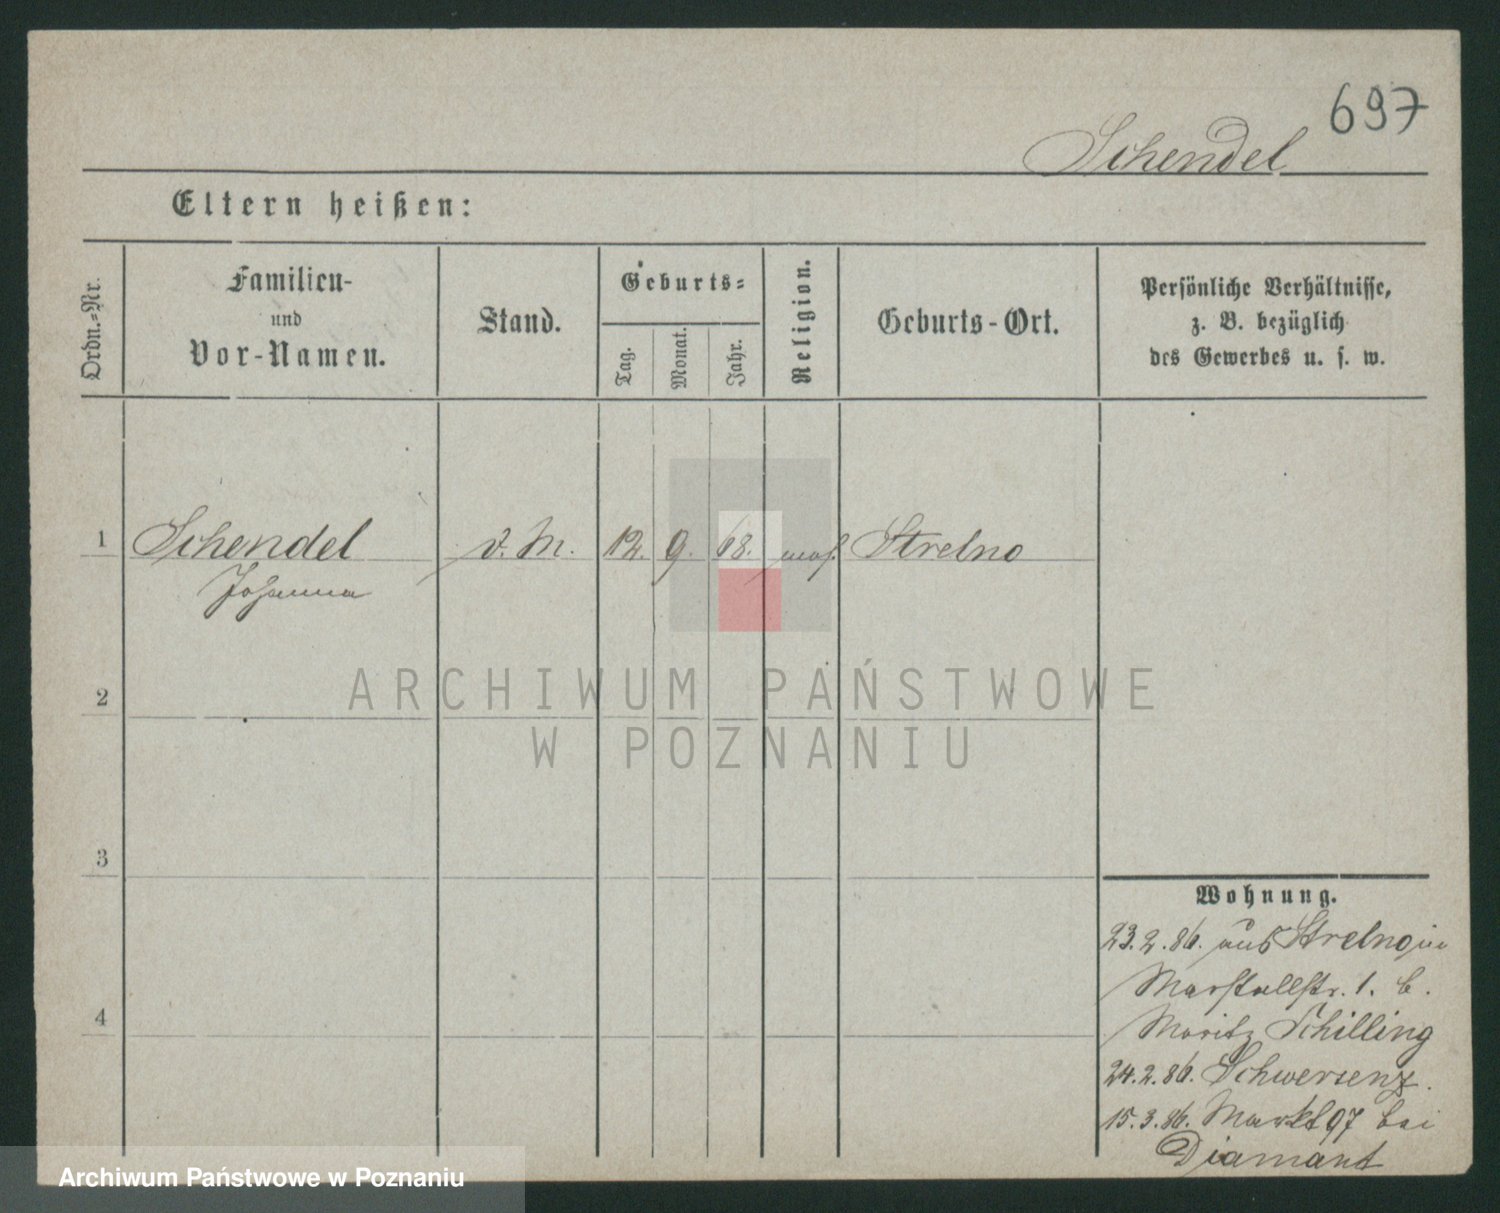 697
Schendel
Eltern heißen:
Ordn.-Nr.
Familien-
und
Vor-Namen.
Stand.
Geburts-
Tag.
Monat.
Jahr.
Religion.
Geburts-Ort.
Persönliche Verhältnisse,
z. B. bezüglich
des Gewerbes u. s. w.
1 Schendel d. M. 12. 9. 68. mos. Strelno
Johanna
ARCHIWUM PAŃSTWOWE
2
W POZNANIU
3
Wohnung.
23.2.86. aus Strelno in
Marstallstr. 1. b.
4
Moritz Schilling
24.2.86. Schwersenz.
15.3.86. Markt 97 bei
Diamant
Archiwum Państwowe w Poznaniu